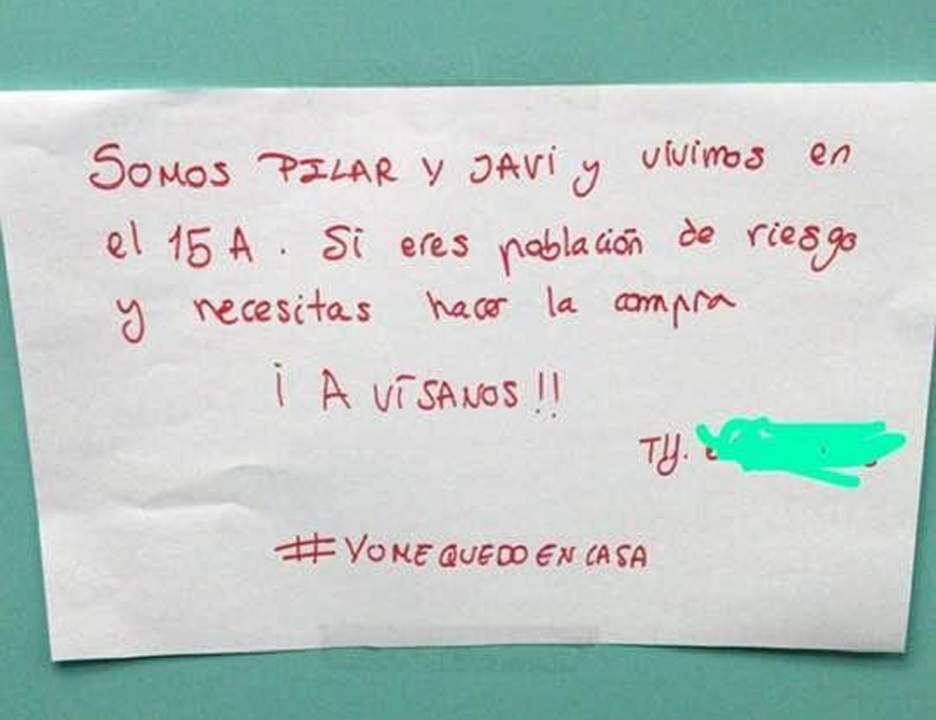 SOMOS PILAR Y JAVI y vivimos en
el 15 A. Si eres población de riesgo
y necesitas hacer la compra
¡AVÍSANOS!!
Tf.
#YOMEQUEDOENCASA